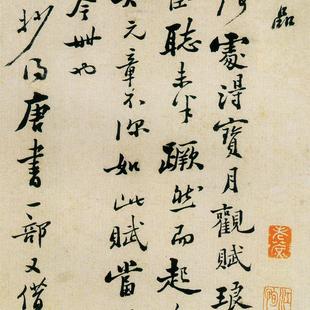 品
處得寶月觀賦琅
聽未半蹶然而起
元章不深如此賦當
今世也
抄得唐書一部又借